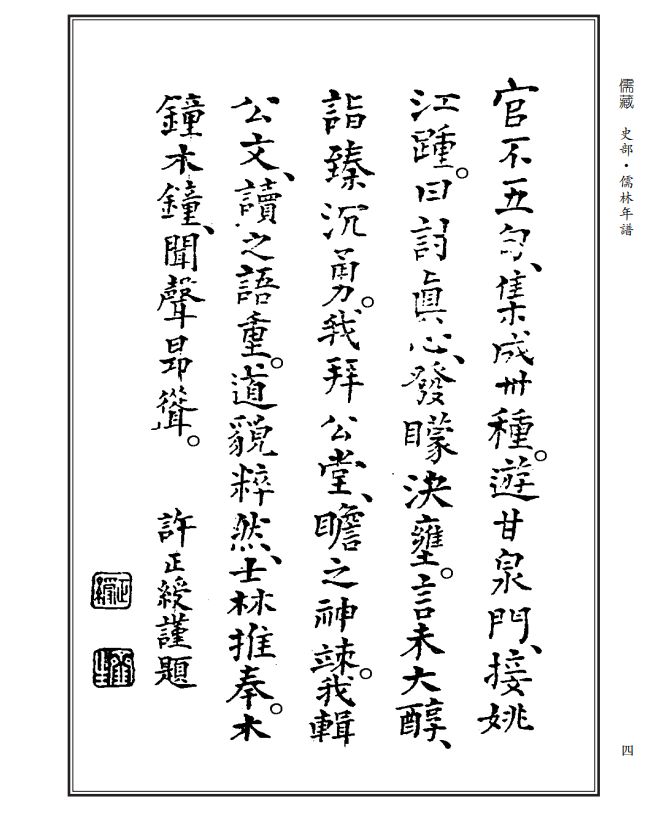 儒藏 史部·儒林年譜
官不五旬、集成卅種。遊甘泉門、接姚
江踵。曰討眞心、發矇決壅。言未大醇、
詣臻沉勇。我拜公堂、瞻之神竦。我輯
公文、讀之語重。道貌粹然、士林推奉。木
鐘木鐘、聞聲昂聳。
許正綬謹題
四